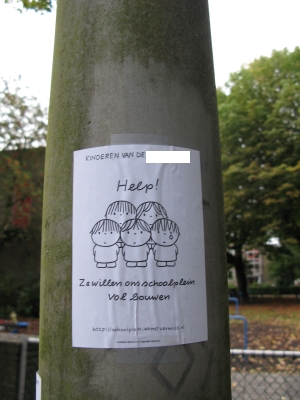 KINDEREN VAN DE
Help!
Ze willen ons schoolplein
vol bouwen